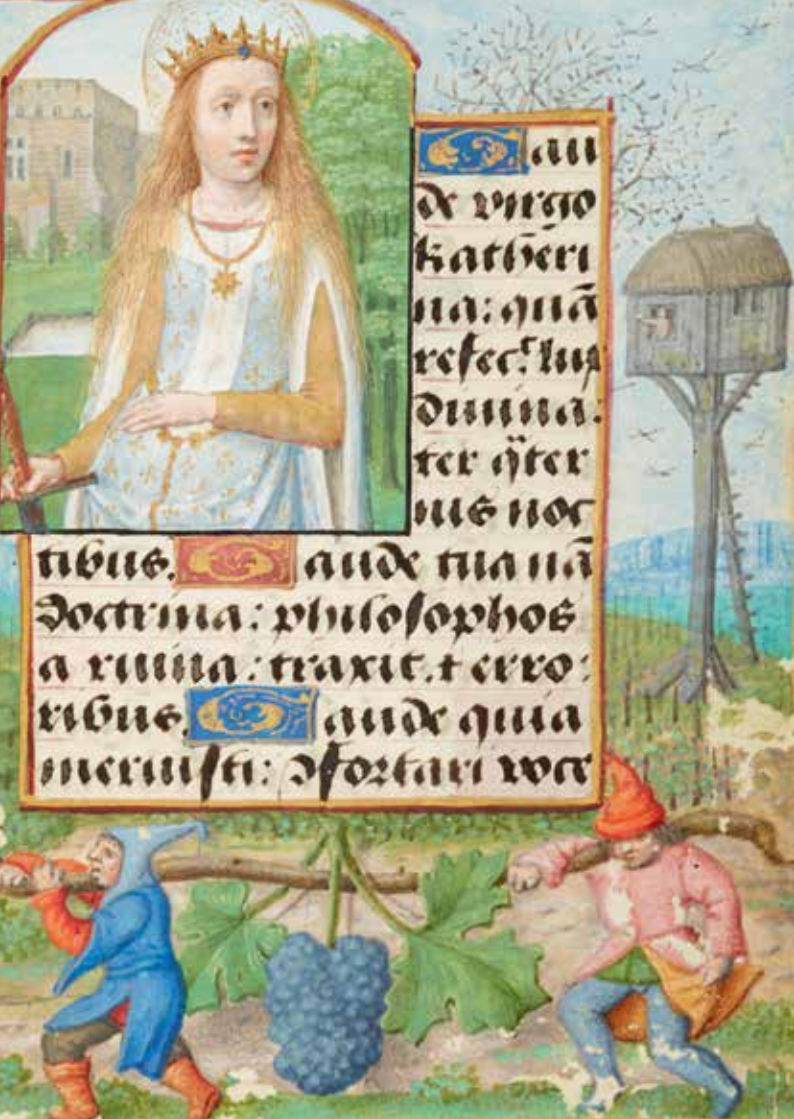 Gau
de virgo
katheri
na: quā
refec.t lup
diuina:
ter q̈ter
nis noc
tibus. Gaude tua nā
doctrina: philosophos
a ruina: traxit. ⁊ erro:
ribus. Gaude quia
meruisti: ꝯfortari voce